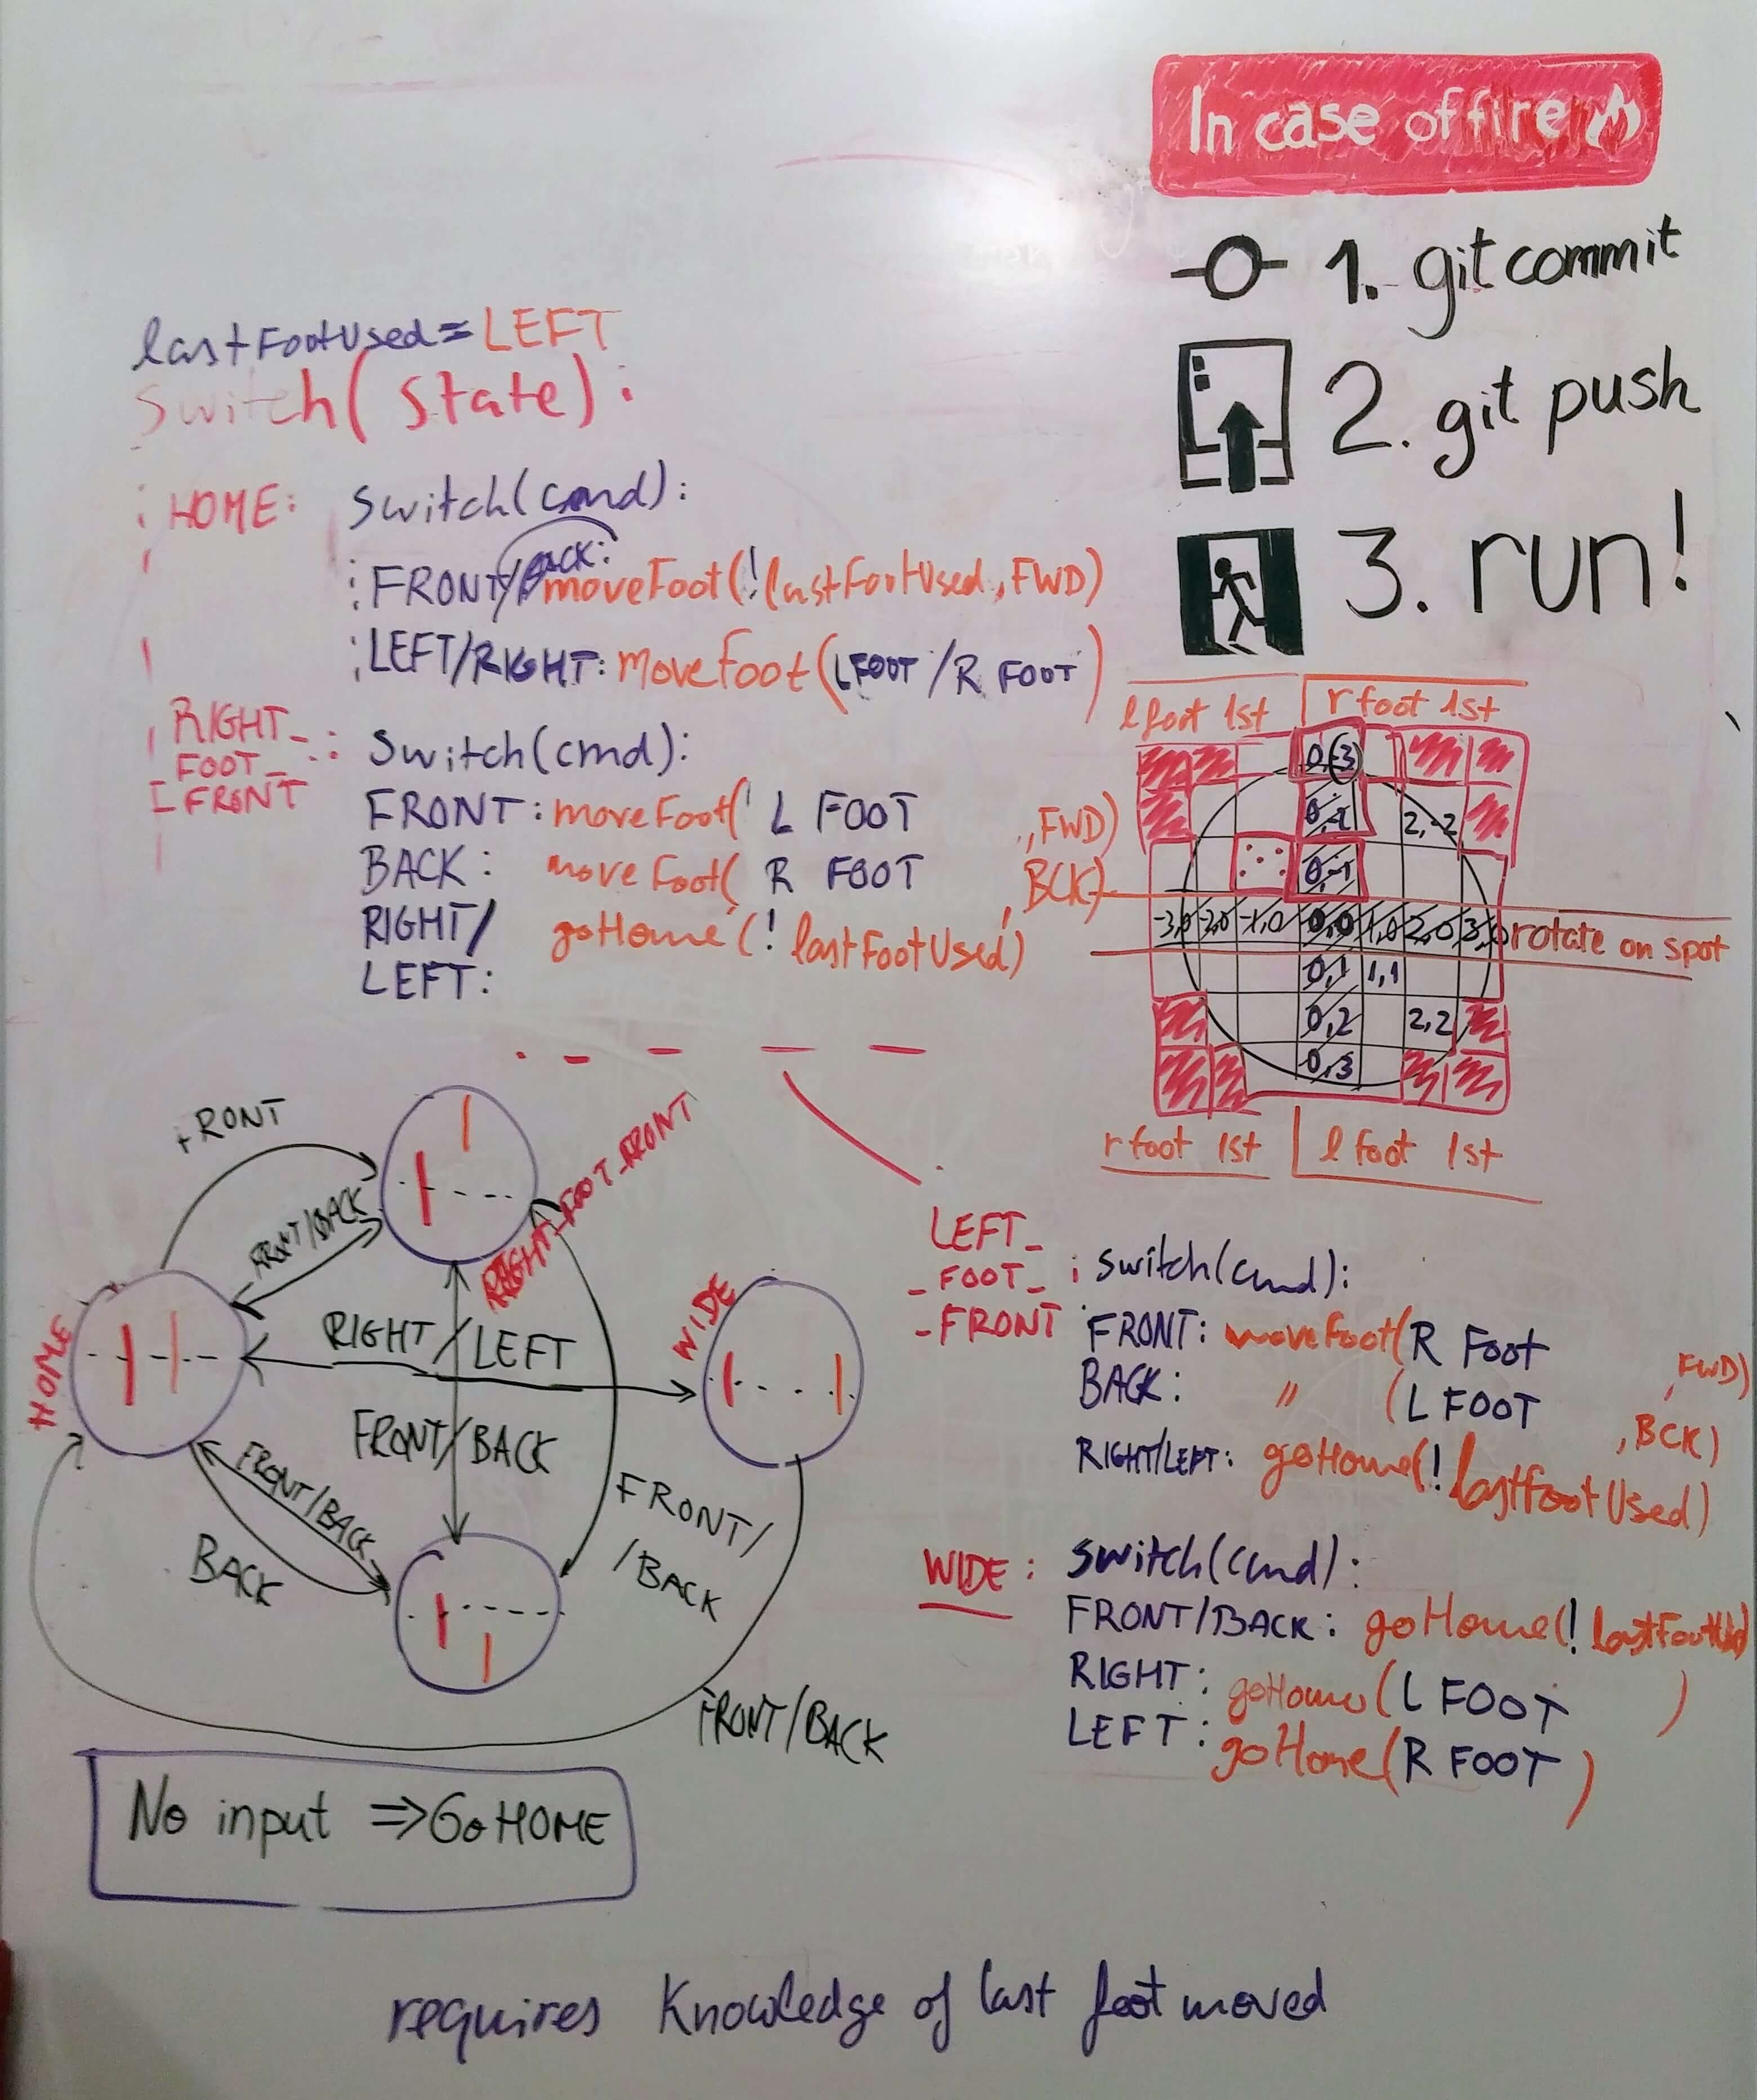 In case of fire
1. git commit
2. git push
3. run!
lastFootUsed = LEFT
Switch(state):
HOME: switch(cmd):
FRONT/BACK: moveFoot(!lastFootUsed, FWD)
LEFT/RIGHT: moveFoot(LFOOT/R FOOT)
RIGHT_
FOOT_
FRONT
: switch(cmd):
FRONT: moveFoot( L FOOT , FWD)
BACK: moveFoot( R FOOT , BCK)
RIGHT/ goHome(! lastFootUsed)
LEFT:
l foot 1st r foot 1st
0,-3
0,-2 2,-2
0,-1
-3,0 -2,0 -1,0 0,0 1,0 2,0 3,0 rotate on spot
0,1 1,1
0,2 2,2
0,3
r foot 1st l foot 1st
FRONT
FRONT/BACK
RIGHT_FOOT_FRONT
HOME
RIGHT/LEFT
WIDE
FRONT/BACK
FRONT/BACK
BACK
FRONT/
/BACK
FRONT/BACK
No input => Go HOME
LEFT_
_FOOT_ : switch(cmd):
-FRONT FRONT: moveFoot(R Foot , FWD)
BACK: " (L FOOT , BCK)
RIGHT/LEFT: goHome(! lastFootUsed)
WIDE: switch(cmd):
FRONT/BACK: goHome(! lastFootUsd)
RIGHT: goHome(L FOOT )
LEFT: goHome(R FOOT )
requires Knowledge of last foot moved